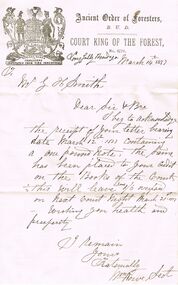 Ancient Order of Foresters,
B. U. D.
COURT KING OF THE FOREST,
Long Gully Bendigo
March 14th 1887
To
Mr G H Smith
Dear Sir & Bro
I beg to acknowledge
the receipt of your letter bearing
date March 12th containing
a one pound note. the same
has been placed to your credit
on the Books of the Court
this will leave 1/6 required
on next Court Night March 21st
wishing you health and
prosperity
I Remain
Yours
Fraternally
Sect